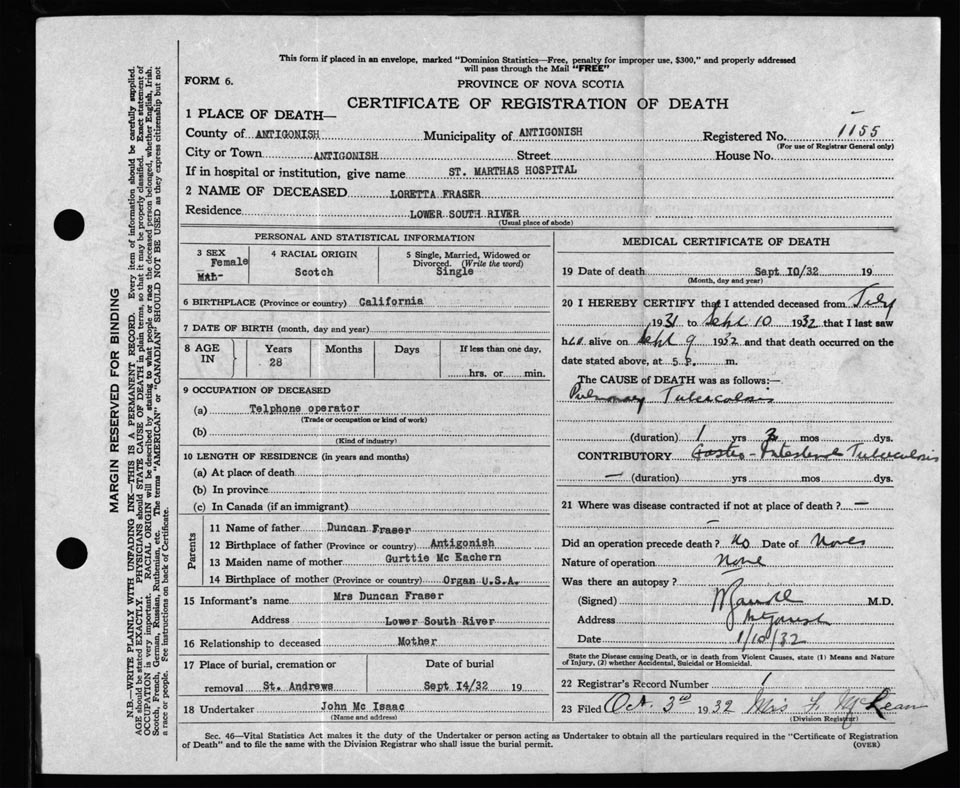 This form if placed in an envelope, marked "Dominion Statistics—Free, penalty for improper use, $300," and properly addressed
will pass through the Mail "FREE"
FORM 6.
PROVINCE OF NOVA SCOTIA
CERTIFICATE OF REGISTRATION OF DEATH
1 PLACE OF DEATH—
County of ANTIGONISH Municipality of ANTIGONISH Registered No. 1155
(For use of Registrar General only)
City or Town ANTIGONISH Street House No.
If in hospital or institution, give name ST. MARTHAS HOSPITAL
2 NAME OF DECEASED LORETTA FRASER
Residence LOWER SOUTH RIVER
(Usual place of abode)
PERSONAL AND STATISTICAL INFORMATION
3 SEX Female
4 RACIAL ORIGIN Scotch
5 Single, Married, Widowed or Divorced. (Write the word) Single
6 BIRTHPLACE (Province or country) California
7 DATE OF BIRTH (month, day and year)
8 AGE IN Years 28 Months Days If less than one day, hrs. or min.
9 OCCUPATION OF DECEASED
(a) Telphone operator
(Trade or occupation or kind of work)
(b)
(Kind of industry)
10 LENGTH OF RESIDENCE (in years and months)
(a) At place of death
(b) In province
(c) In Canada (if an immigrant)
Parents
11 Name of father Duncan Fraser
12 Birthplace of father (Province or country) Antigonish
13 Maiden name of mother Gurttie Mc Eachern
14 Birthplace of mother (Province or country) Organ U.S.A.
15 Informant's name Mrs Duncan Fraser
Address Lower South River
16 Relationship to deceased Mother
17 Place of burial, cremation or removal St. Andrews
Date of burial Sept 14/32 19
18 Undertaker John Mc Isaac
(Name and address)
MEDICAL CERTIFICATE OF DEATH
19 Date of death Sept 10/32 19
(Month, day and year)
20 I HEREBY CERTIFY that I attended deceased from July
1931 to Sept 10 1932 that I last saw
her alive on Sept 9 1932 and that death occurred on the
date stated above, at 5 P. m.
The CAUSE of DEATH was as follows:—
Pulmonary Tuberculosis
(duration) 1 yrs mos dys.
CONTRIBUTORY Gastro-Intestinal Tuberculosis
— (duration) yrs mos dys.
21 Where was disease contracted if not at place of death? —
Did an operation precede death? No Date of
Nature of operation None
Was there an autopsy?
(Signed) M.D.
Address Antigonish
Date 1/10/32
State the Disease causing Death, or in death from Violent Causes, state (1) Means and Nature
of Injury, (2) whether Accidental, Suicidal or Homicidal.
22 Registrar's Record Number 1
23 Filed Oct. 3rd 1932 Mrs F. McLean
(Division Registrar)
Sec. 46—Vital Statistics Act makes it the duty of the Undertaker or person acting as Undertaker to obtain all the particulars required in the "Certificate of Registration
of Death" and to file the same with the Division Registrar who shall issue the burial permit.
(OVER)
MARGIN RESERVED FOR BINDING
N.B.—WRITE PLAINLY WITH UNFADING INK—THIS IS A PERMANENT RECORD. Every item of information should be carefully supplied.
AGE should be stated EXACTLY. PHYSICIANS should STATE CAUSE OF DEATH in plain terms, so that it may be properly classified. Exact statement of
OCCUPATION is very important. RACIAL ORIGIN will be described by stating to what people or race the deceased person belonged, whether English, Irish,
Scotch, French, German, Russian, Ruthenian, etc. The terms "AMERICAN" or "CANADIAN" SHOULD NOT BE USED as they express citizenship but not
a race or people. See instructions on back of Certificate.